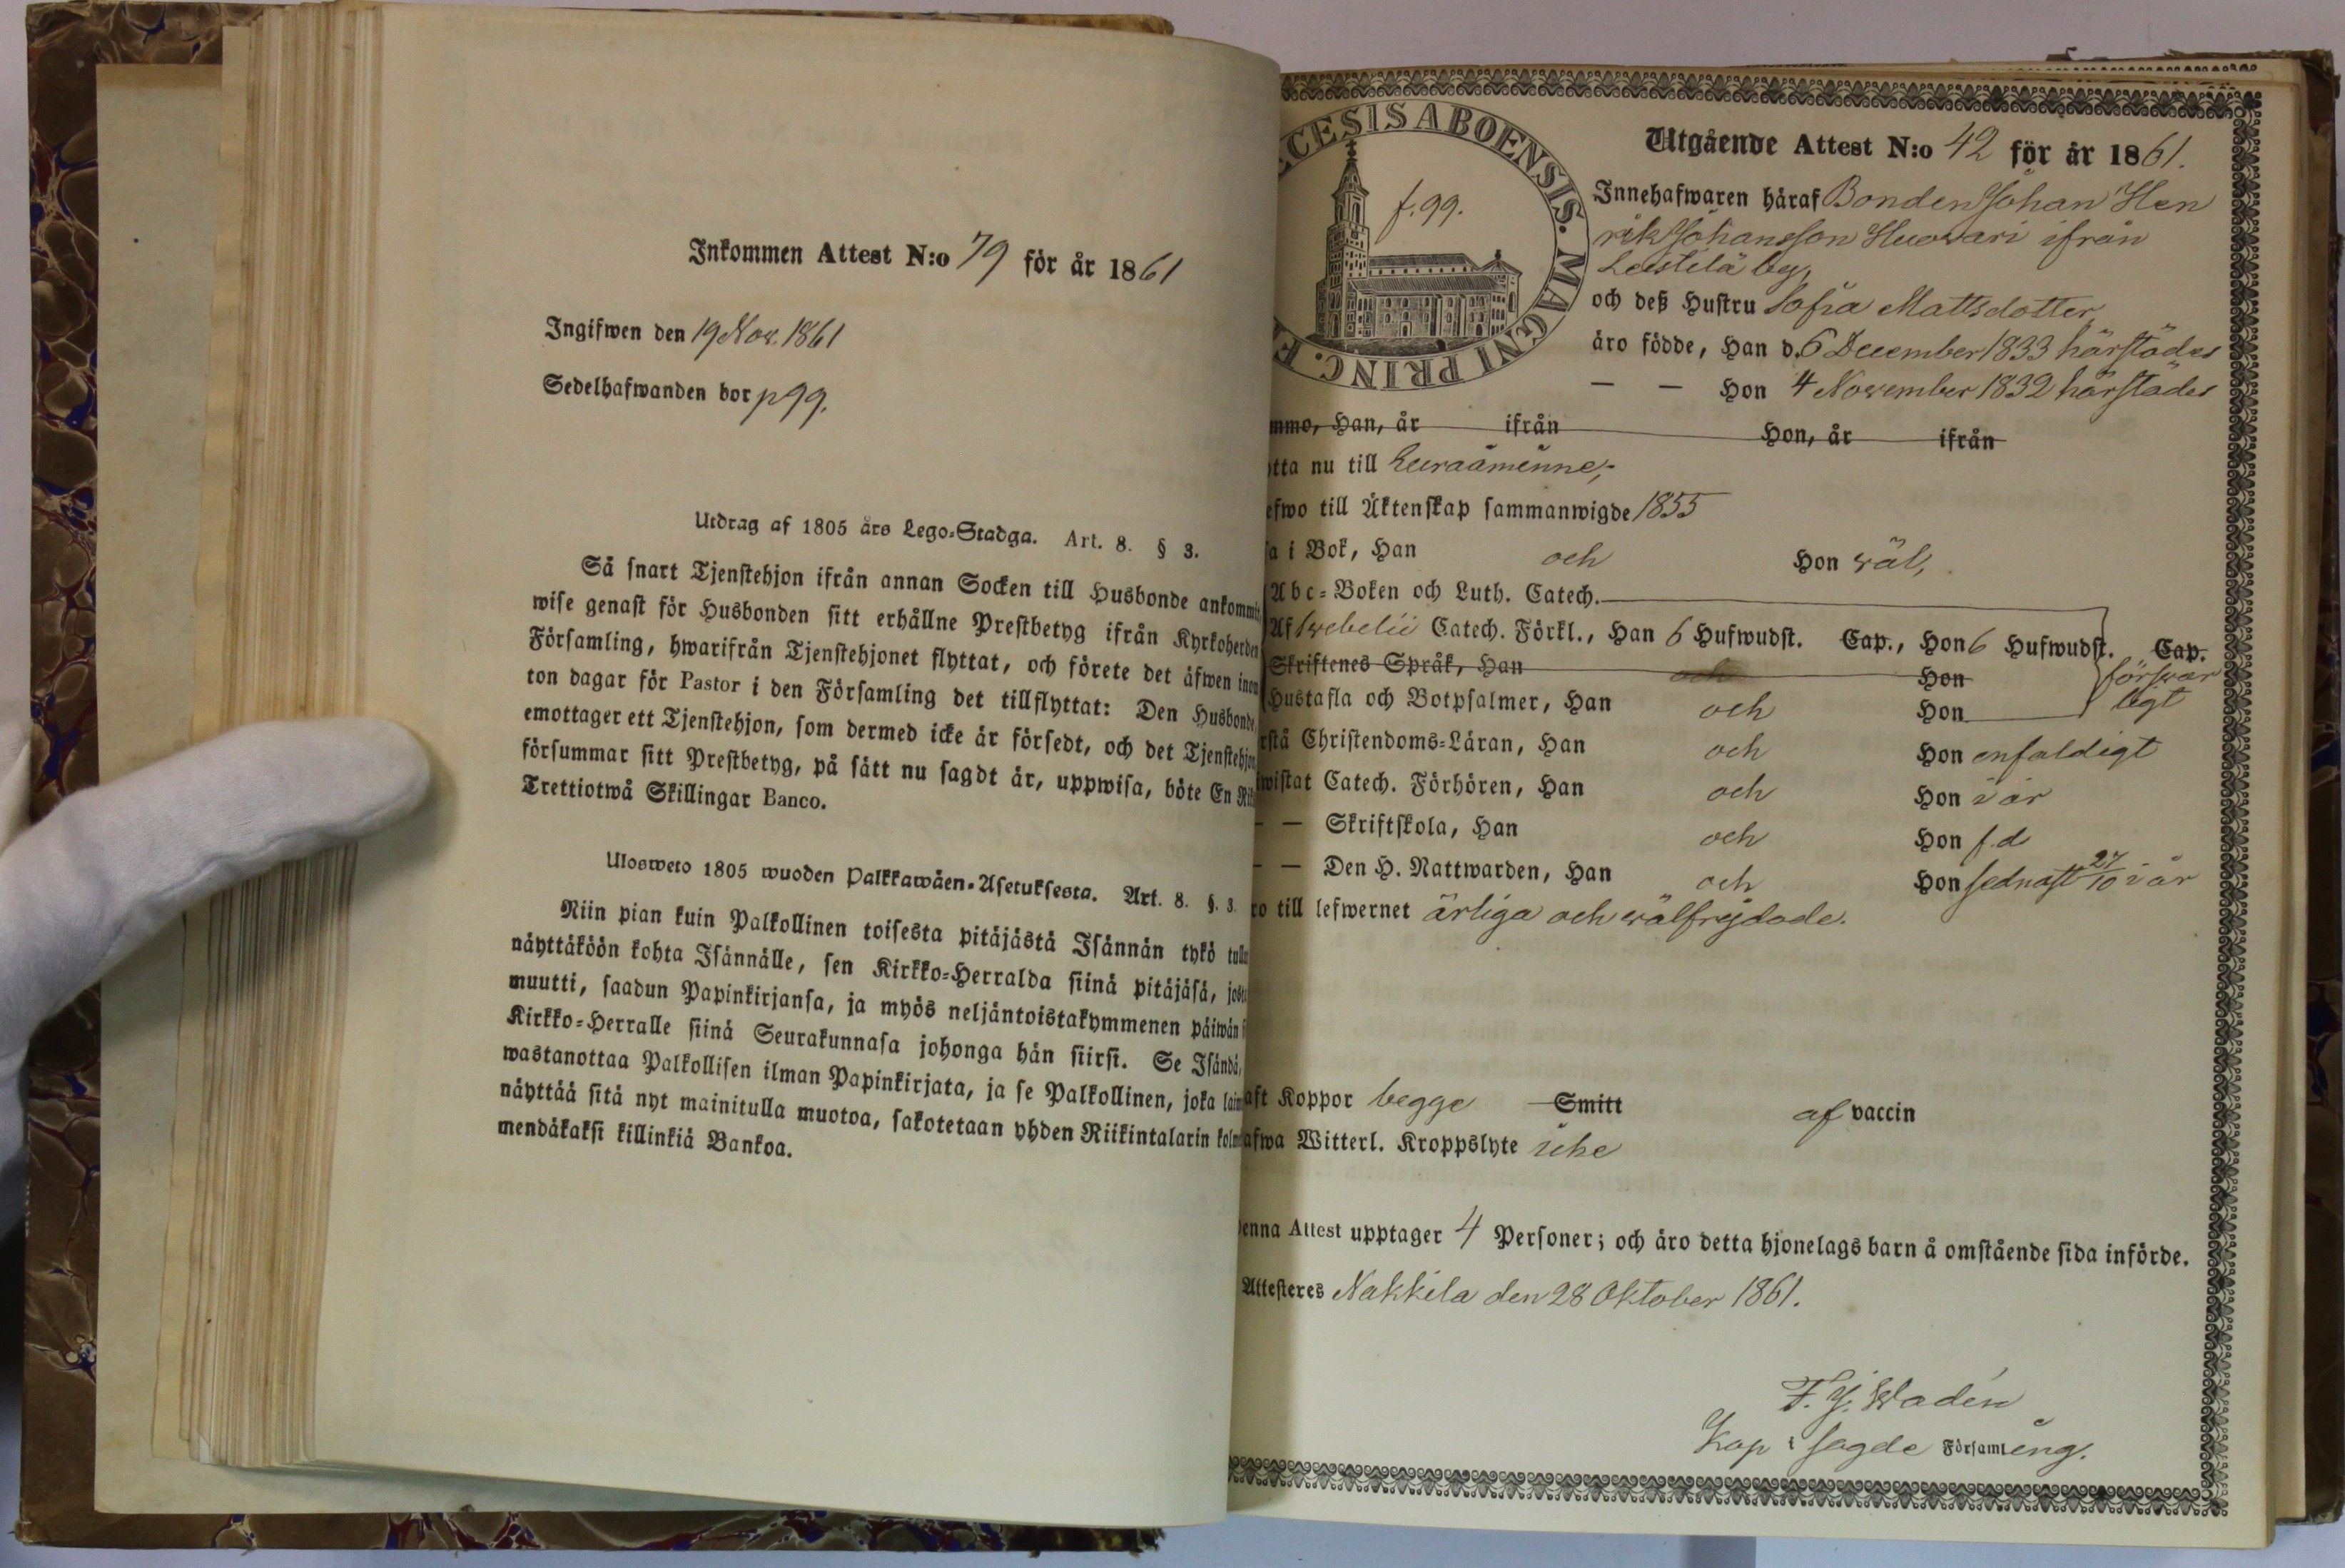 Inkommen Attest N:o 79 för år 1861
Ingifwen den 19 Nov. 1861
Sedelhafwanden bor p 99.
Utdrag af 1805 års Lego-Stadga. Art. 8. § 3.
Så snart Tjenstehjon ifrån annan Socken till Husbonde ankommit
wise genast för Husbonden sitt erhållne Prestbetyg ifrån Kyrkoherden
Församling, hwarifrån Tjenstehjonet flyttat, och förete det äfwen inom
ton dagar för Pastor i den Församling det tillflyttat: Den Husbonde,
emottager ett Tjenstehjon, som dermed icke är försedt, och det Tjenstehjon
försummar sitt Prestbetyg, på sätt nu sagdt är, uppwisa, böte En Rik
Trettiotwå Skillingar Banco.
Ulosweto 1805 wuoden Palkkawäen-Asetuksesta. Art. 8. §. 3.
Niin pian kuin Palkollinen toisesta pitäjästä Isännän tykö tullu
näyttäköön kohta Isännälle, sen Kirkko-Herralda siinä pitäjäsä, josta
muutti, saadun Papinkirjansa, ja myös neljäntoistakymmenen päiwän s
Kirkko-Herralle siinä Seurakunnasa johonga hän siirsi. Se Isändä,
wastanottaa Palkollisen ilman Papinkirjata, ja se Palkollinen, joka laim
näyttää sitä nyt mainitulla muotoa, sakotetaan yhden Riikintalarin kolm
mendäkaksi killinkiä Bankoa.
CESIS ABOENSIS. MAGNI PRINC. F
f. 99.
Utgående Attest N:o 42 för år 1861.
Innehafwaren häraf Bonden Johan Hen
rik Johansson Huovari ifrån
Leistilä by,
och deß Hustru Sofia Mattsdotter,
äro födde, Han d. 6 December 1833 härstädes
— — Hon 4 November 1832 härstädes
mmo, Han, år ifrån Hon, år ifrån
tta nu till Euraåminne,
efwo till Äktenskap sammanwigde 1855
sa i Bok, Han och Hon wäl,
Abc-Boken och Luth. Catech.
Af Swebelii Catech. Förkl., Han 6 Hufwudst. Cap., Hon 6 Hufwudst. Cap.
Skriftenes Språk, Han och Hon
försvar
ligt
Hustafla och Botpsalmer, Han och Hon
rstå Christendoms-Läran, Han och Hon enfaldigt
wistat Catech. Förhören, Han och Hon i år
— — Skriftskola, Han och Hon f.d
— — Den H. Nattwarden, Han och Hon sednast 27/10 i år
ro till lefwernet ärliga och wälfrejdade.
aft Koppor begge Smitt af vaccin
afwa Witterl. Kroppslyte icke
enna Attest upptager 4 Personer; och äro detta hjonelags barn å omstående sida införde.
Attesteres Nakkila den 28 Oktober 1861.
F. J. Wadén
Kap i sagde Församling.